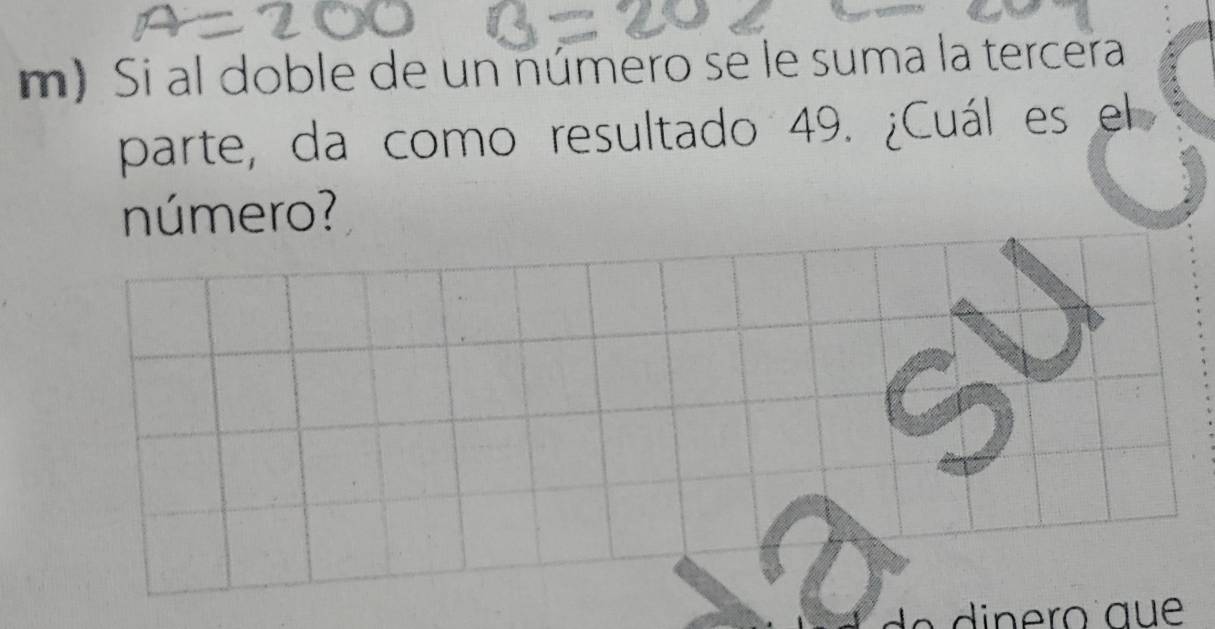 A=200 B=202
m) Si al doble de un número se le suma la tercera
parte, da como resultado 49. ¿Cuál es el
número?
da su
dinero que